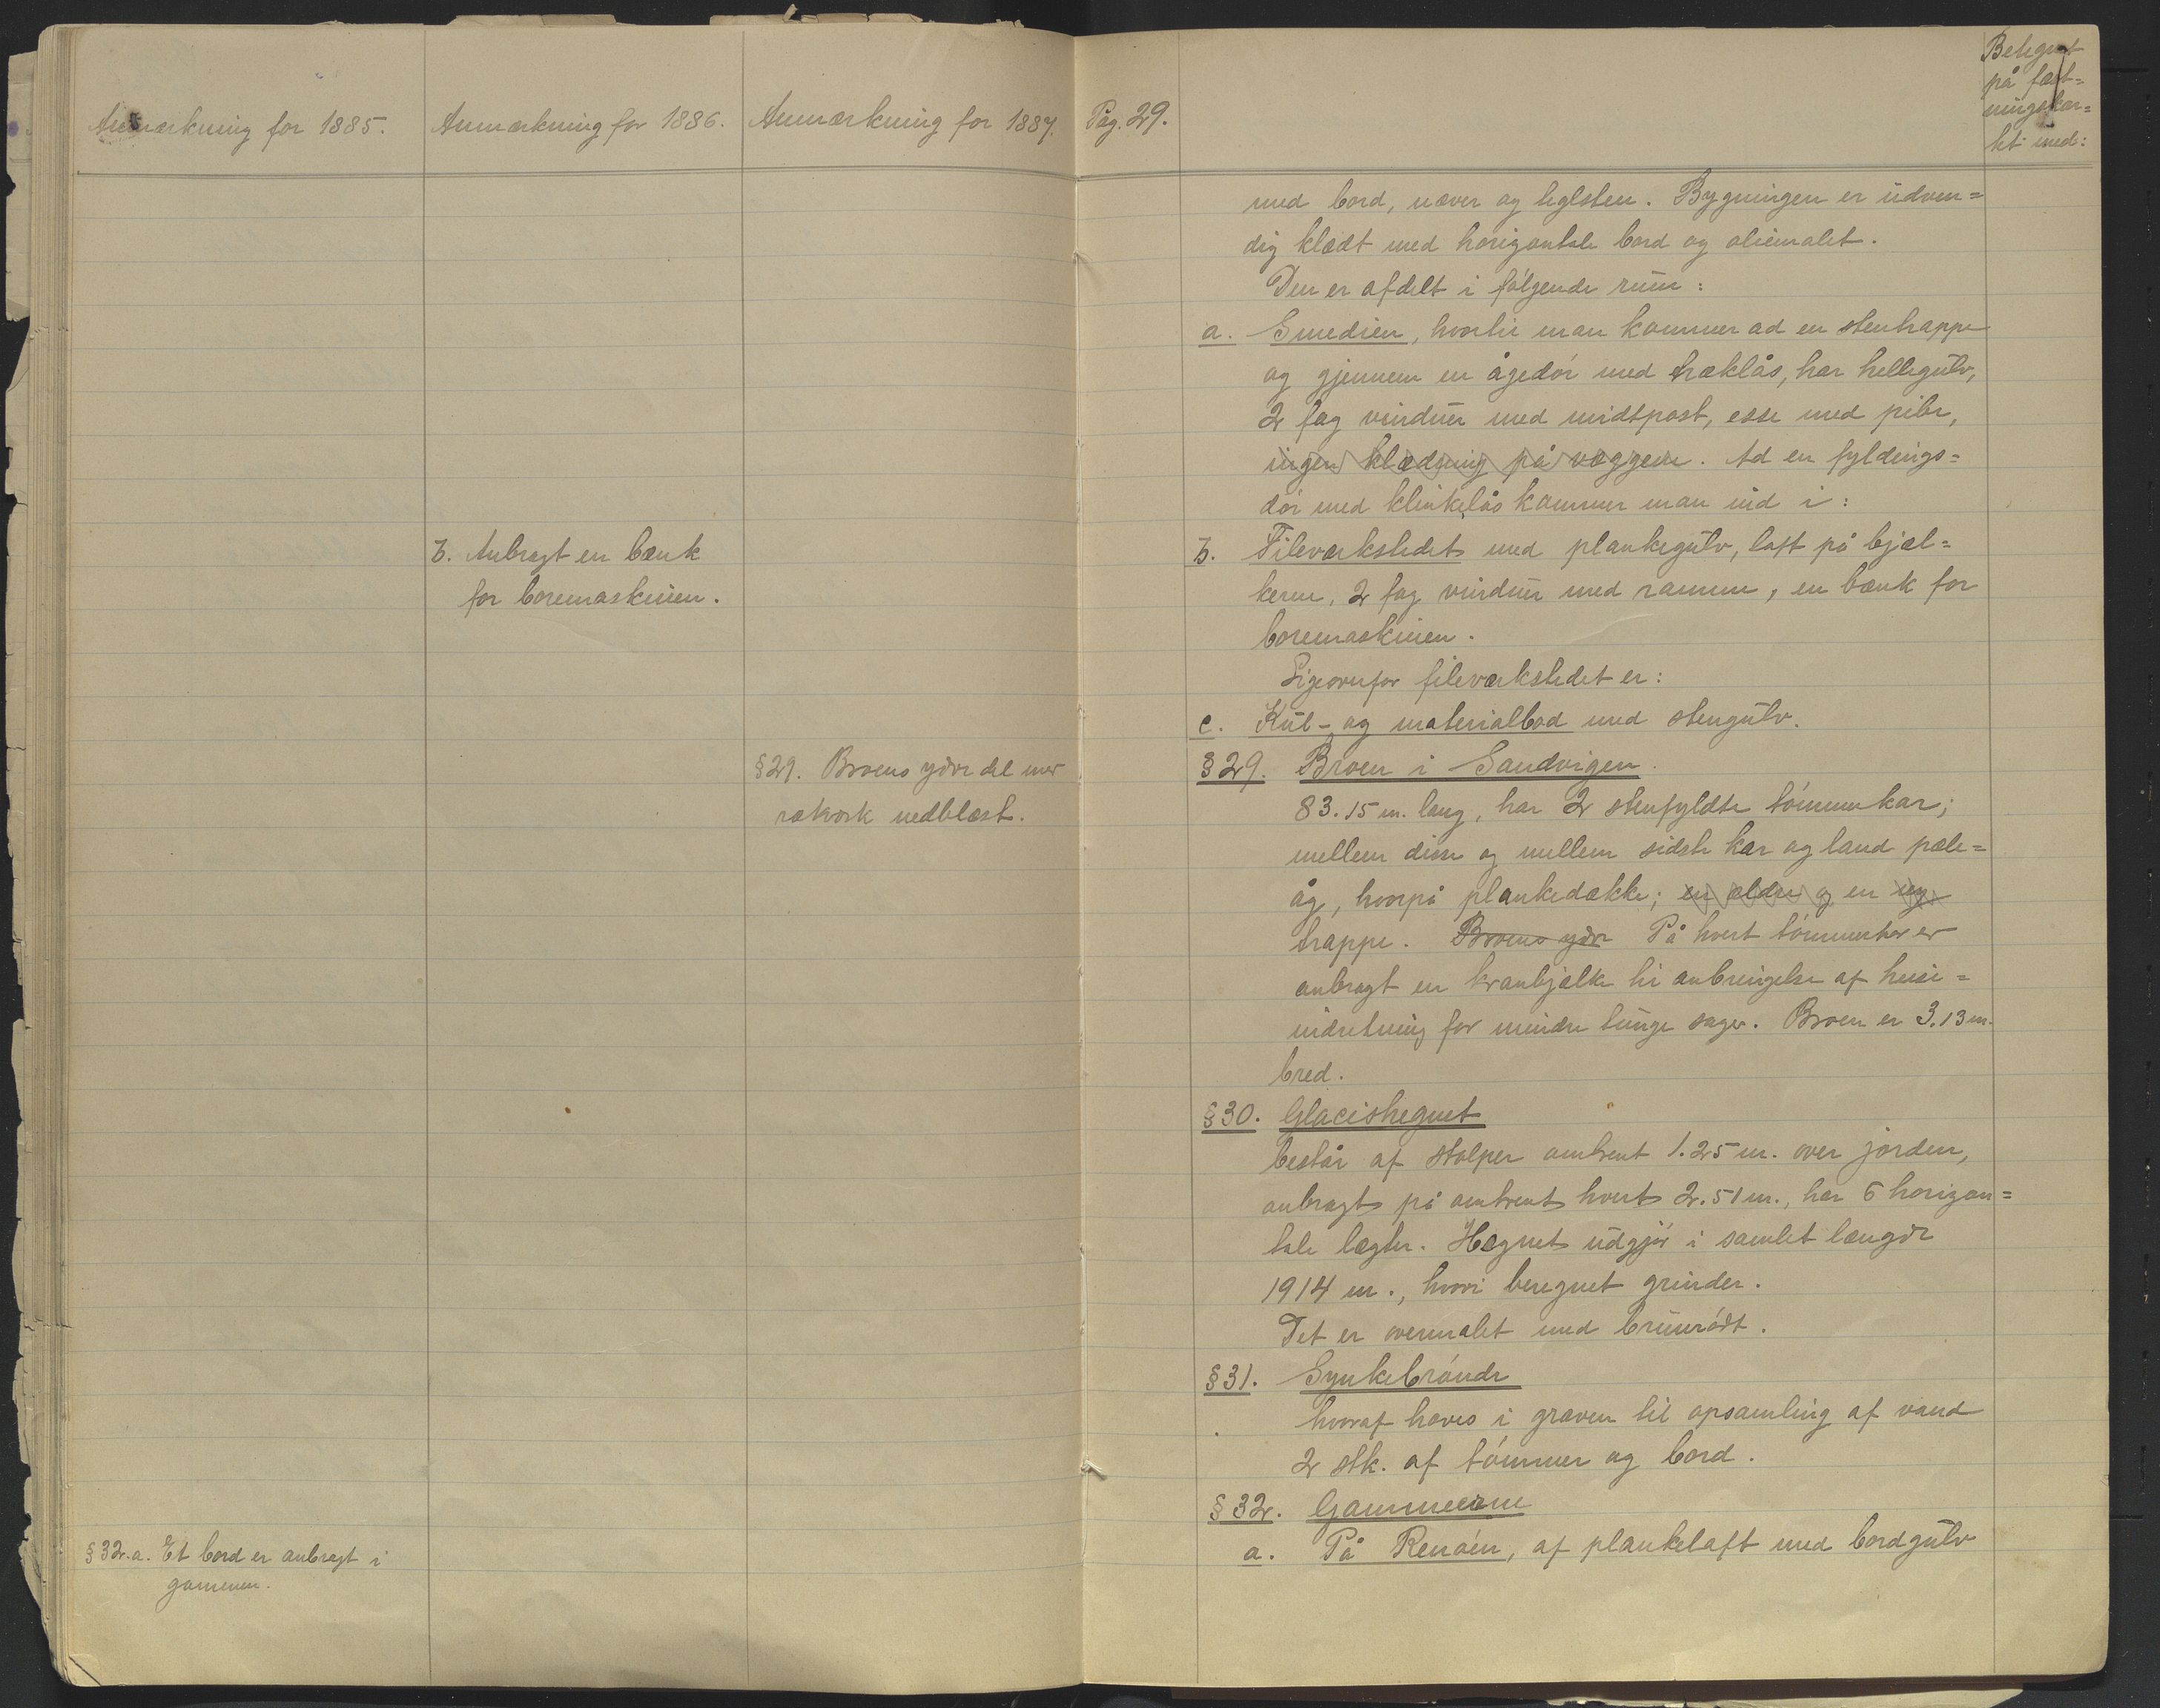 Anmærkning for 1885.
Anmærkning for 1886.
Anmærkning for 1887.
b. Anbragt en bænk
for boremaskinen.
§29. Broens ydre del nær
nedblæst.
§32.a. Et bord er anbragt i
gammen.
Pag. 29.
Betegnet
på fæst=
ningskar=
tet med:
med bord, næver og teglsten. Bygningen er udven=
dig klædt med horizontale bord og oliemalet.
Den er afdelt i følgende rum:
a. Smedien, hvortil man kommer ad en stentrappe
og gjennem en ågedør med træklås, har hellegulv,
2 fag vinduer med midtpost, esse med pibe,
ingen klædning på væggene. Ad en fyldings=
dør med klinkelås kommer man ind i:
b. Fileværkstedet med plankegulv, loft på bjæl=
kerne, 2 fag vinduer med ramme, en bænk for
boremaskinen.
Ligeoverfor fileværkstedet er:
c. Kul- og materialbod med stengulv.
§29. Broen i Sandvigen.
83.15 m. lang, har 2 stenfyldte tømmerkar;
mellem disse og mellem sidste kar og land pæle=
åg, hvorpå plankedække; en ældre og en ny
trappe. Broens ydre På hvert tømmerkar er
anbragt en kranbjælke til anbringelse af heise=
indretning for mindre tunge sager. Broen er 3.13 m.
bred.
§30. Glacishegnet
består af stolper omtrent 1.25 m. over jorden,
anbragt på omtrent hvert 2.51 m., har 6 horizon=
tale lægter. Hegnet udgjør i samlet længde
1914 m., hvori beregnet grinder.
Det er overmalet med brunrødt.
§31. Synkebrønde
hvoraf haves i graven til opsamling af vand
2 stk. af tømmer og bord.
§32. Gammerne
a. På Renøen, af plankelaft med bordgulv